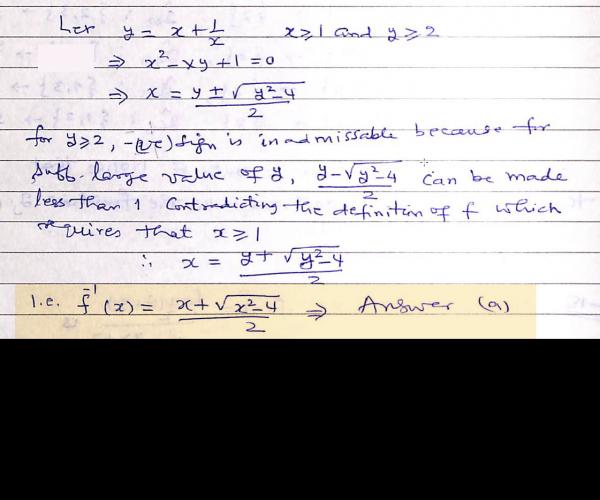 Let y = x + 1/x x ≥ 1 and y ≥ 2
⇒ x² - xy + 1 = 0
⇒ x = (y ± √(y²-4))/2
for y ≥ 2, -(ve) sign is inadmissable because for
suff. large value of y, (y - √(y²-4))/2 can be made
less than 1 Contradicting the definition of f which
requires that x ≥ 1
∴ x = (y + √(y²-4))/2
i.e. f⁻¹(x) = (x + √(x²-4))/2 ⇒ Answer (a)